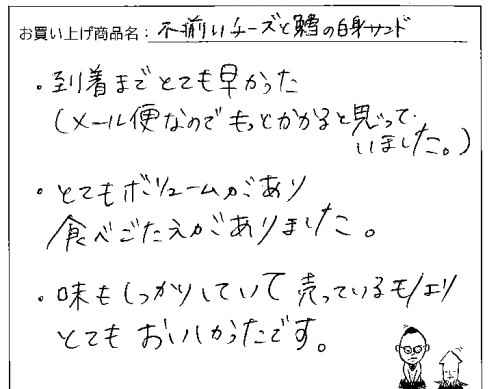 お買い上げ商品名：不揃いチーズと鱈の白身サンド
・到着までとても早かった
（メール便なのでもっとかかると思って
いました。）
・とてもボリュームがあり
食べごたえがありました。
・味もしっかりしていて売っているモノより
とてもおいしかったです。